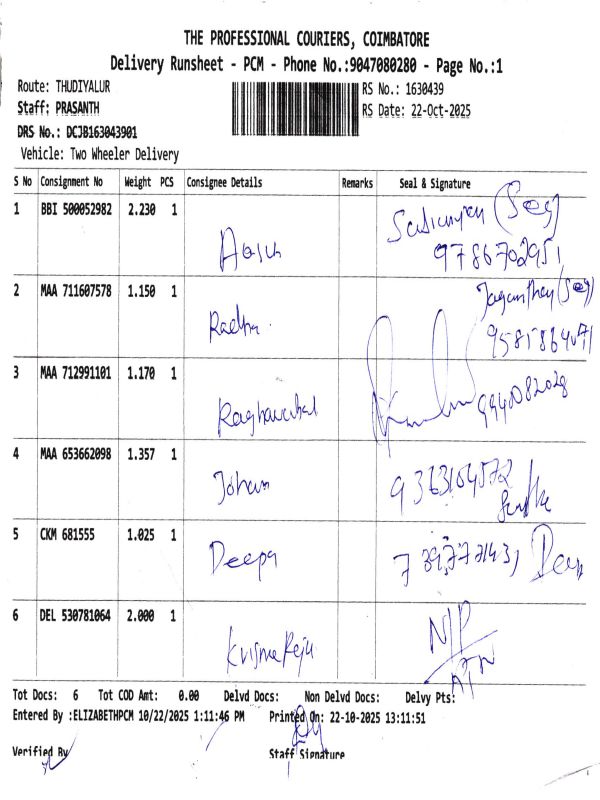 THE PROFESSIONAL COURIERS, COIMBATORE
Delivery Runsheet - PCM - Phone No.:9047080280 - Page No.:1
Route: THUDIYALUR
RS No.: 1630439
Staff: PRASANTH
RS Date: 22-Oct-2025
DRS No.: DCJB163043901
Vehicle: Two Wheeler Delivery
S No Consignment No Weight PCS Consignee Details Remarks Seal & Signature
1 BBI 500052982 2.230 1
(Son)
9786702951
2 MAA 711607578 1.150 1 Radha
3 MAA 712991101 1.170 1
9940082028
4 MAA 653662098 1.357 1
9363164572
5 CKM 681555 1.025 1 Deepa
6 DEL 530781064 2.000 1 Krishna Raju
Tot Docs: 6 Tot COD Amt: 0.00 Delvd Docs: Non Delvd Docs: Delvy Pts:
Entered By :ELIZABETHPCM 10/22/2025 1:11:46 PM Printed On: 22-10-2025 13:11:51
Verified By Staff Signature